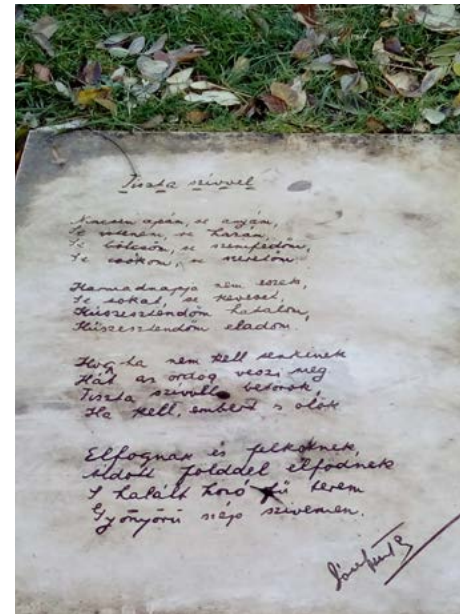 Tiszta szívvel
Nincsen apám, se anyám,
se istenem, se hazám,
se bölcsőm, se szemfedőm,
se csókom, se szeretőm.
Harmadnapja nem eszek,
se sokat, se keveset,
Húszesztendőm hatalom,
Húszesztendőm eladom.
Hogyha nem kell senkinek
Hát az ördög veszi meg
Tiszta szívvel betörök
Ha kell, embert is ölök
Elfognak és felkötnek,
áldott földdel elfödnek
S halált hozó fű terem
Gyönyörű szép szívemen.